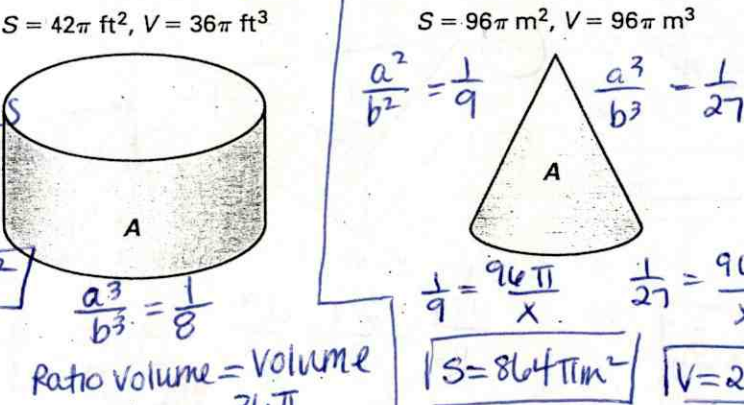 S = 42π ft², V = 36π ft³
S
A
2
a³/b³ = 1/8
Ratio volume = Volume
S = 96π m², V = 96π m³
a²/b² = 1/9
a³/b³ - 1/27
A
1/9 = 96π/x
1/27 = 9
S=864πm²
V=2